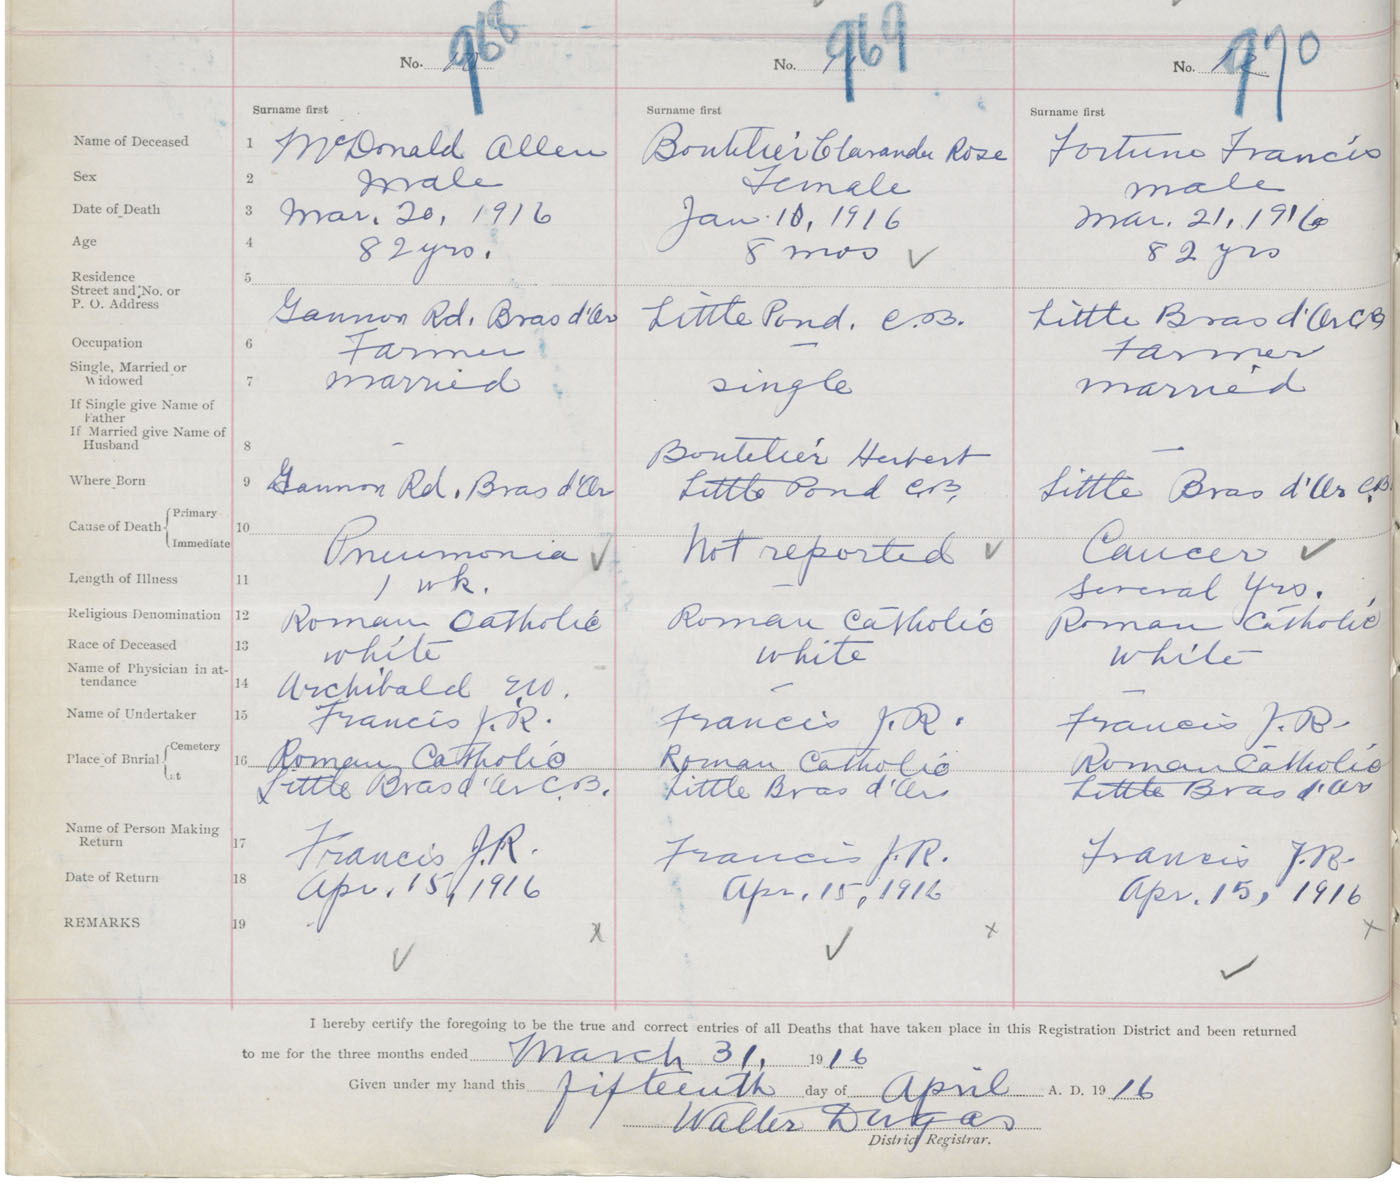 968 969 970
No. 10 No. 11 No. 12
Surname first Surname first Surname first
Name of Deceased 1 McDonald Allen Boutelier Clarander Rose Fortune Francis
Sex 2 Male Female male
Date of Death 3 Mar. 20, 1916 Jan. 10, 1916 Mar. 21, 1916
Age 4 82 yrs. 8 mos ✓ 82 yrs
Residence 5
Street and No. or
P. O. Address
Gannon Rd. Bras d'Or Little Pond. C.B. Little Bras d'Or C.B
Occupation 6 Farmer — Farmer
Single, Married or
Widowed 7 married single married
If Single give Name of
Father
If Married give Name of
Husband 8 - Boutelier Herbert —
Where Born 9 Gannon Rd. Bras d'Or Little Pond C.B. Little Bras d'Or C.B.
Cause of Death { Primary 10
Immediate Pneumonia ✓ Not reported ✓ Cancer ✓
Length of Illness 11 1 wk. — several yrs.
Religious Denomination 12 Roman Catholic Roman Catholic Roman Catholic
Race of Deceased 13 white white white
Name of Physician in at-
tendance 14 Archibald E.W. — —
Name of Undertaker 15 Francis J.R. Francis J.R. Francis J.R.
Place of Burial { Cemetery 16 Roman Catholic Roman Catholic Roman Catholic
At Little Bras d'Or C.B. Little Bras d'Or Little Bras d'Or
Name of Person Making
Return 17 Francis J.R. Francis J.R. Francis J.R.
Date of Return 18 Apr. 15, 1916 Apr. 15, 1916 Apr. 15, 1916
REMARKS 19 x x x
✓ ✓ ✓
I hereby certify the foregoing to be the true and correct entries of all Deaths that have taken place in this Registration District and been returned
to me for the three months ended March 31, 1916
Given under my hand this fifteenth day of April A. D. 1916
Walter Dugas
District Registrar.